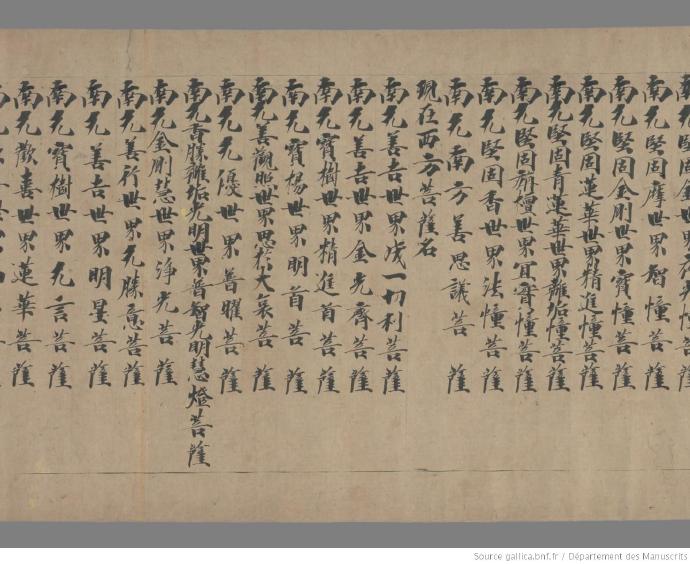 南无堅固摩世界智幢菩薩
南无堅固金剛世界寶幢菩薩
南无堅固蓮華世界精進幢菩薩
南无堅固青蓮華世界離垢幢菩薩
南无堅固栴檀世界幢菩薩
南无堅固香世界法幢菩薩
南无南方善思議菩薩
現在西方菩薩名
南无善吉世界成一切利菩薩
南无善吉世界金光齊菩薩
南无寶樹世界精進首菩薩
南无寶楊世界明首菩薩
南无善觀照世界思於大哀菩薩
南无无優世界普曜菩薩
南无香勝離垢光明世界普智光明慧燈菩薩
南无金剛慧世界淨光菩薩
南无善行世界无勝意菩薩
南无善吉世界明星菩薩
南无寶樹世界无言菩薩
南无歡喜世界蓮華菩薩
Source gallica.bnf.fr / Département des Manuscrits